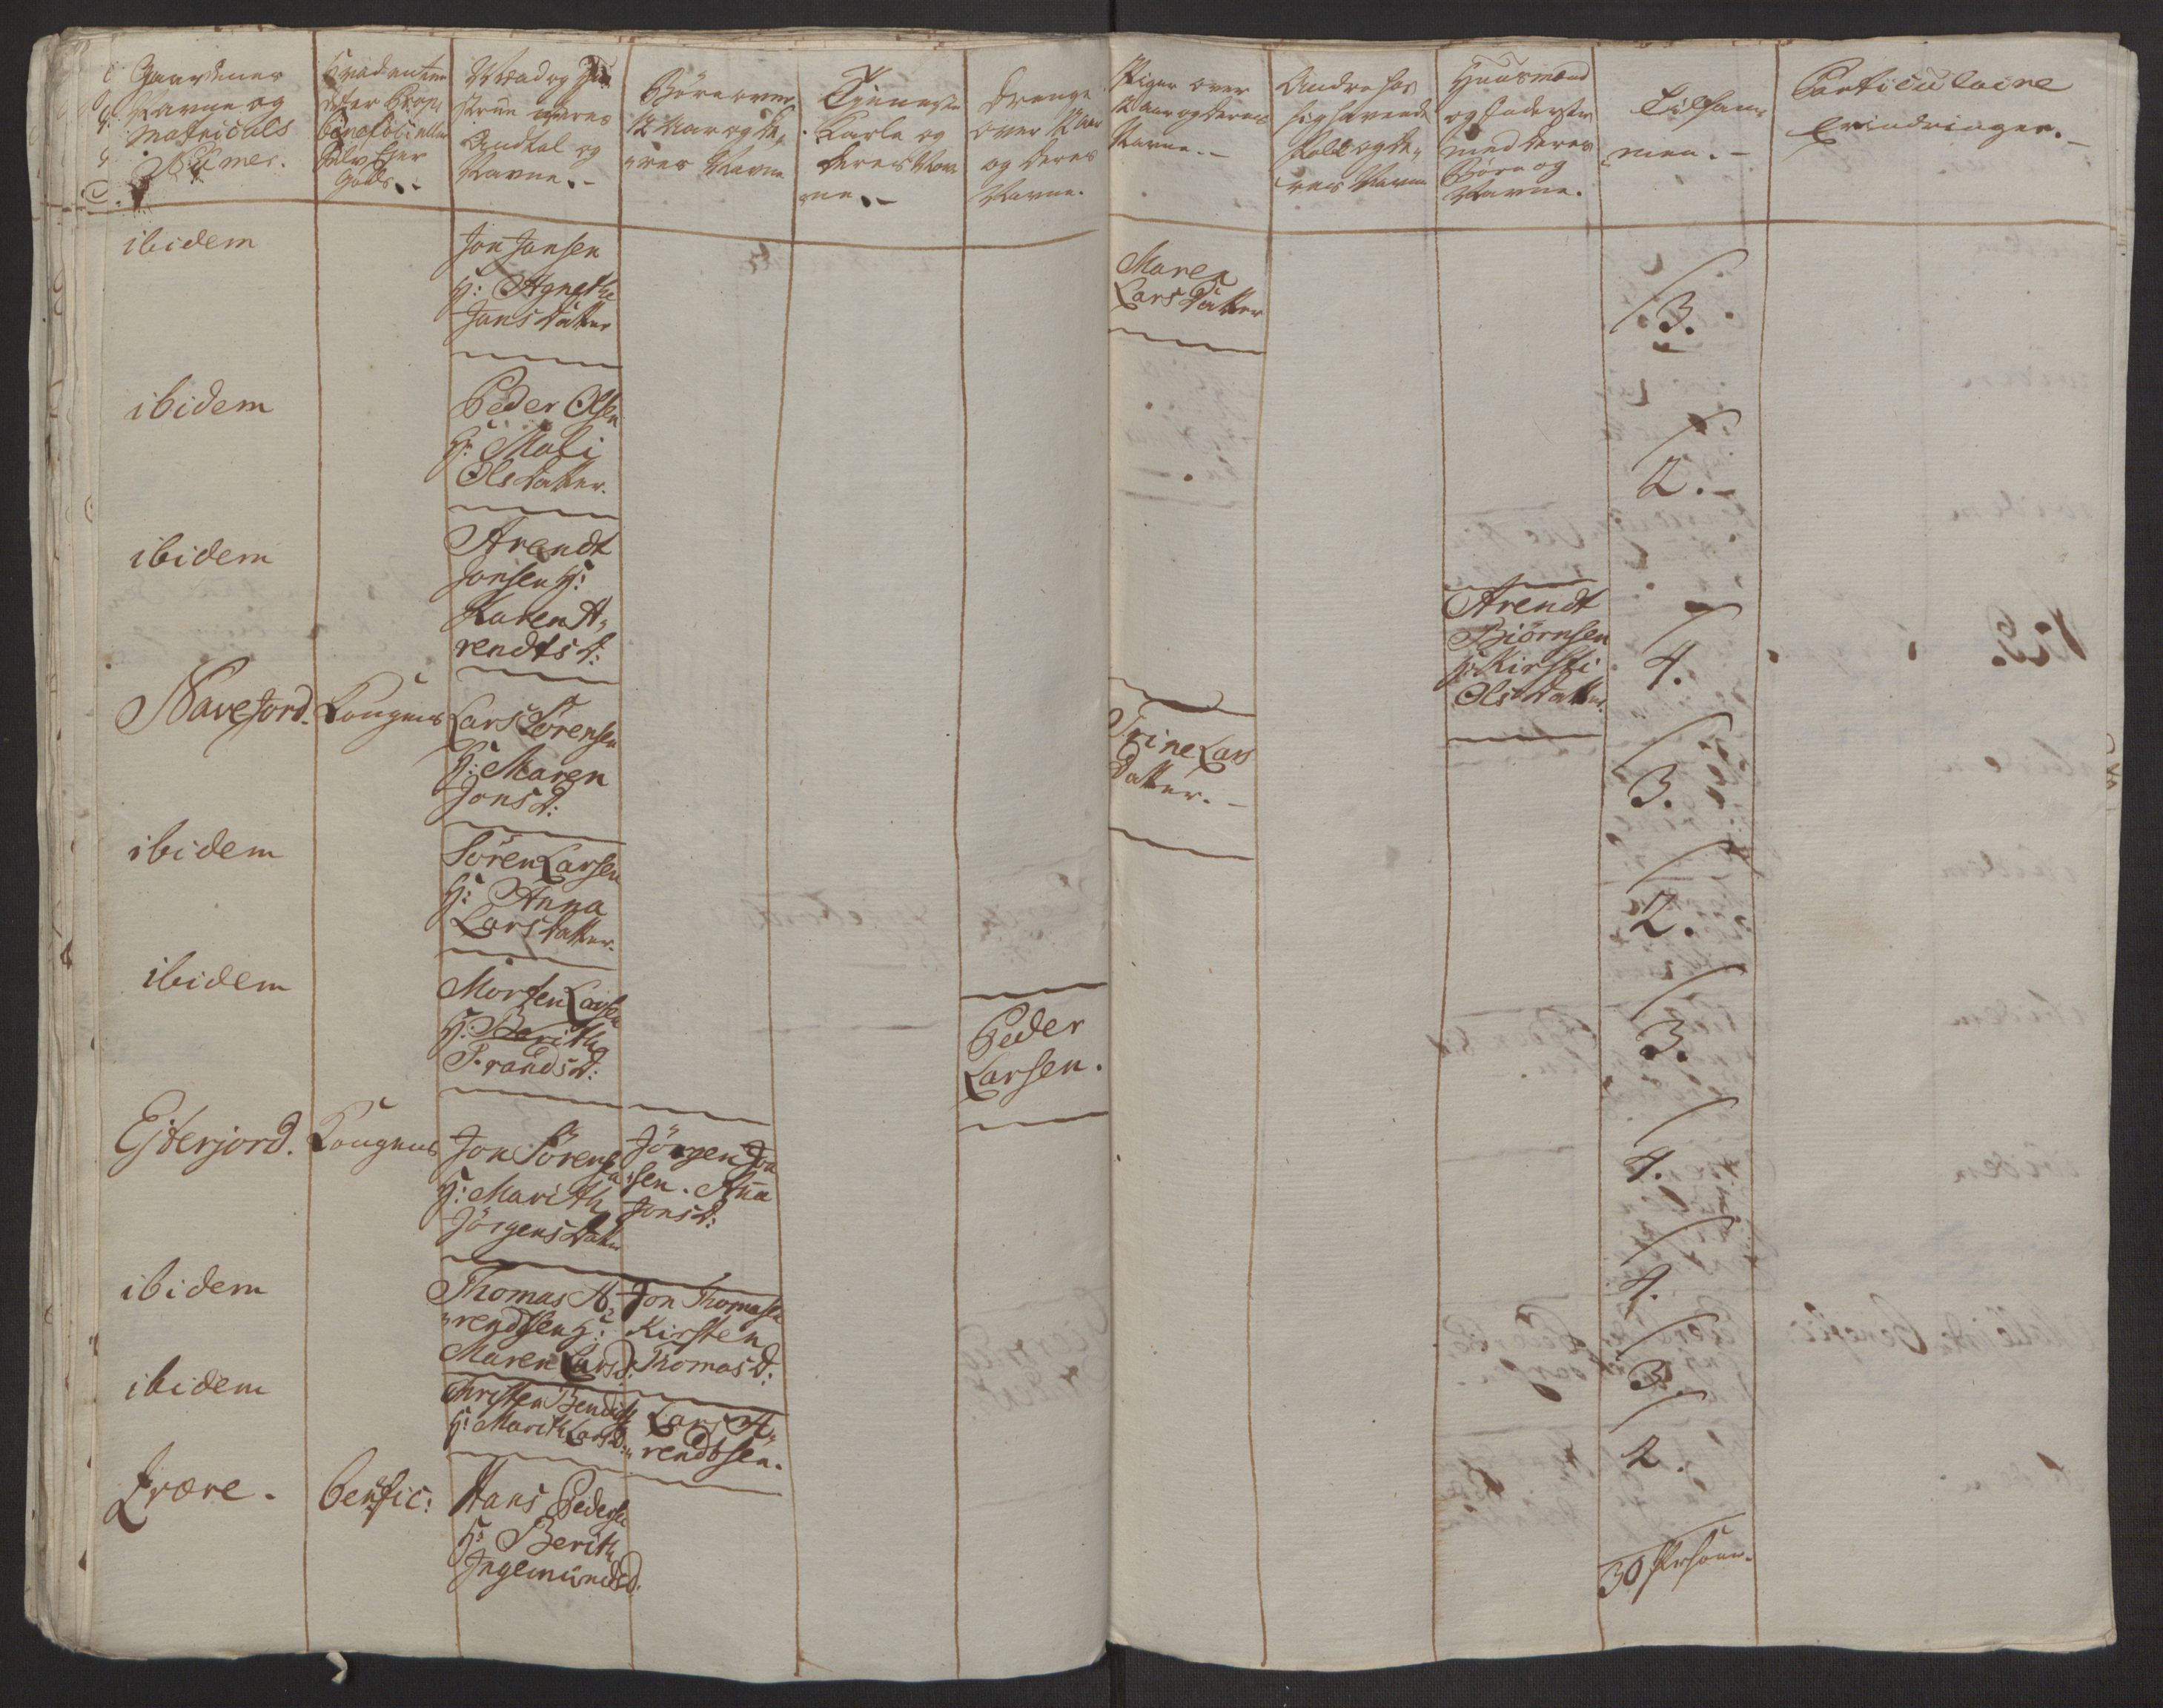 Gaardenes
Navne og
Matriculs
Numer.
Qvadanten
eller Prop:
Beneficii eller
Selv Ejer
Gods.
Mand og Hu
strue deres
Andtal og
Navne.
Börn over
12 Aar og de,,
res Navne
Tienneste
Karle og
deres Nav
ne.
Drenge
over 12 Aar
og deres
Navne.
Piger over
12 Aar og deres
Navne.
Andre hos
sig havende
Folk og de,,
res Navne
Huusmænd
og Inderster
med deres
Börn og
Navne.
Tilsam
men.
Particulaire
Erindringer.
ibidem
Jon Jansen
H: Agnethe
Jans datter
Maren
Lars datter
3.
ibidem
Peder Olsen
H: Mali
Ols datter.
2.
ibidem
Arendt
Jonsen H:
Karen A,,
rendts d:
Arendt
Biörnsen
H: Kirsti
Ols datter.
4.
Navejord. Kongens
Lars Sörensen
H: Maren
Jons d:
Trine Lars
datter.
3.
ibidem
Sören Larsen
H: Anna
Lars datter.
2.
ibidem
Morten Larsen
H: Berith
Trands d:
Peder
Larsen.
3.
Ejterjord. Kongens
Jon Sörensen
H: Marith
Jörgens datter
Jörgen Jon
sen. Ana
Jons d:
4.
ibidem
Thomas A,,
rendtsen H:
Maren Lars d:
Jon Thomasen
Kirsten
Thomas d:
4.
ibidem
Christen Bendtsen
H: Marith Lars d:
Lars A,,
rendtsen.
3.
Zrære. Benefic:
Hans Pedersen
H: Berith
Ingemunds d.
2.
30 Personer.